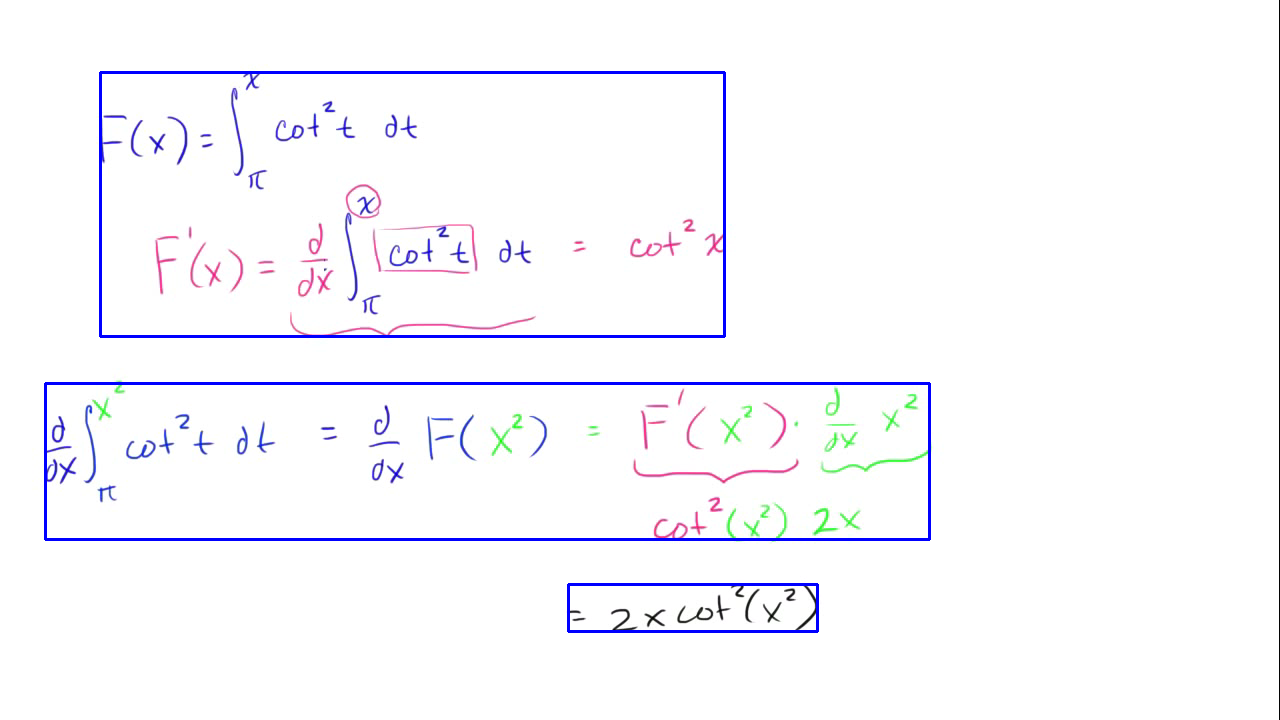 F(x) = ∫_π^x cot² t dt
F'(x) = d/dx ∫_π^x cot² t dt = cot² x
d/dx ∫_π^x² cot² t dt = d/dx F(x²) = F'(x²) · d/dx x²
cot²(x²) 2x
= 2x cot²(x²)